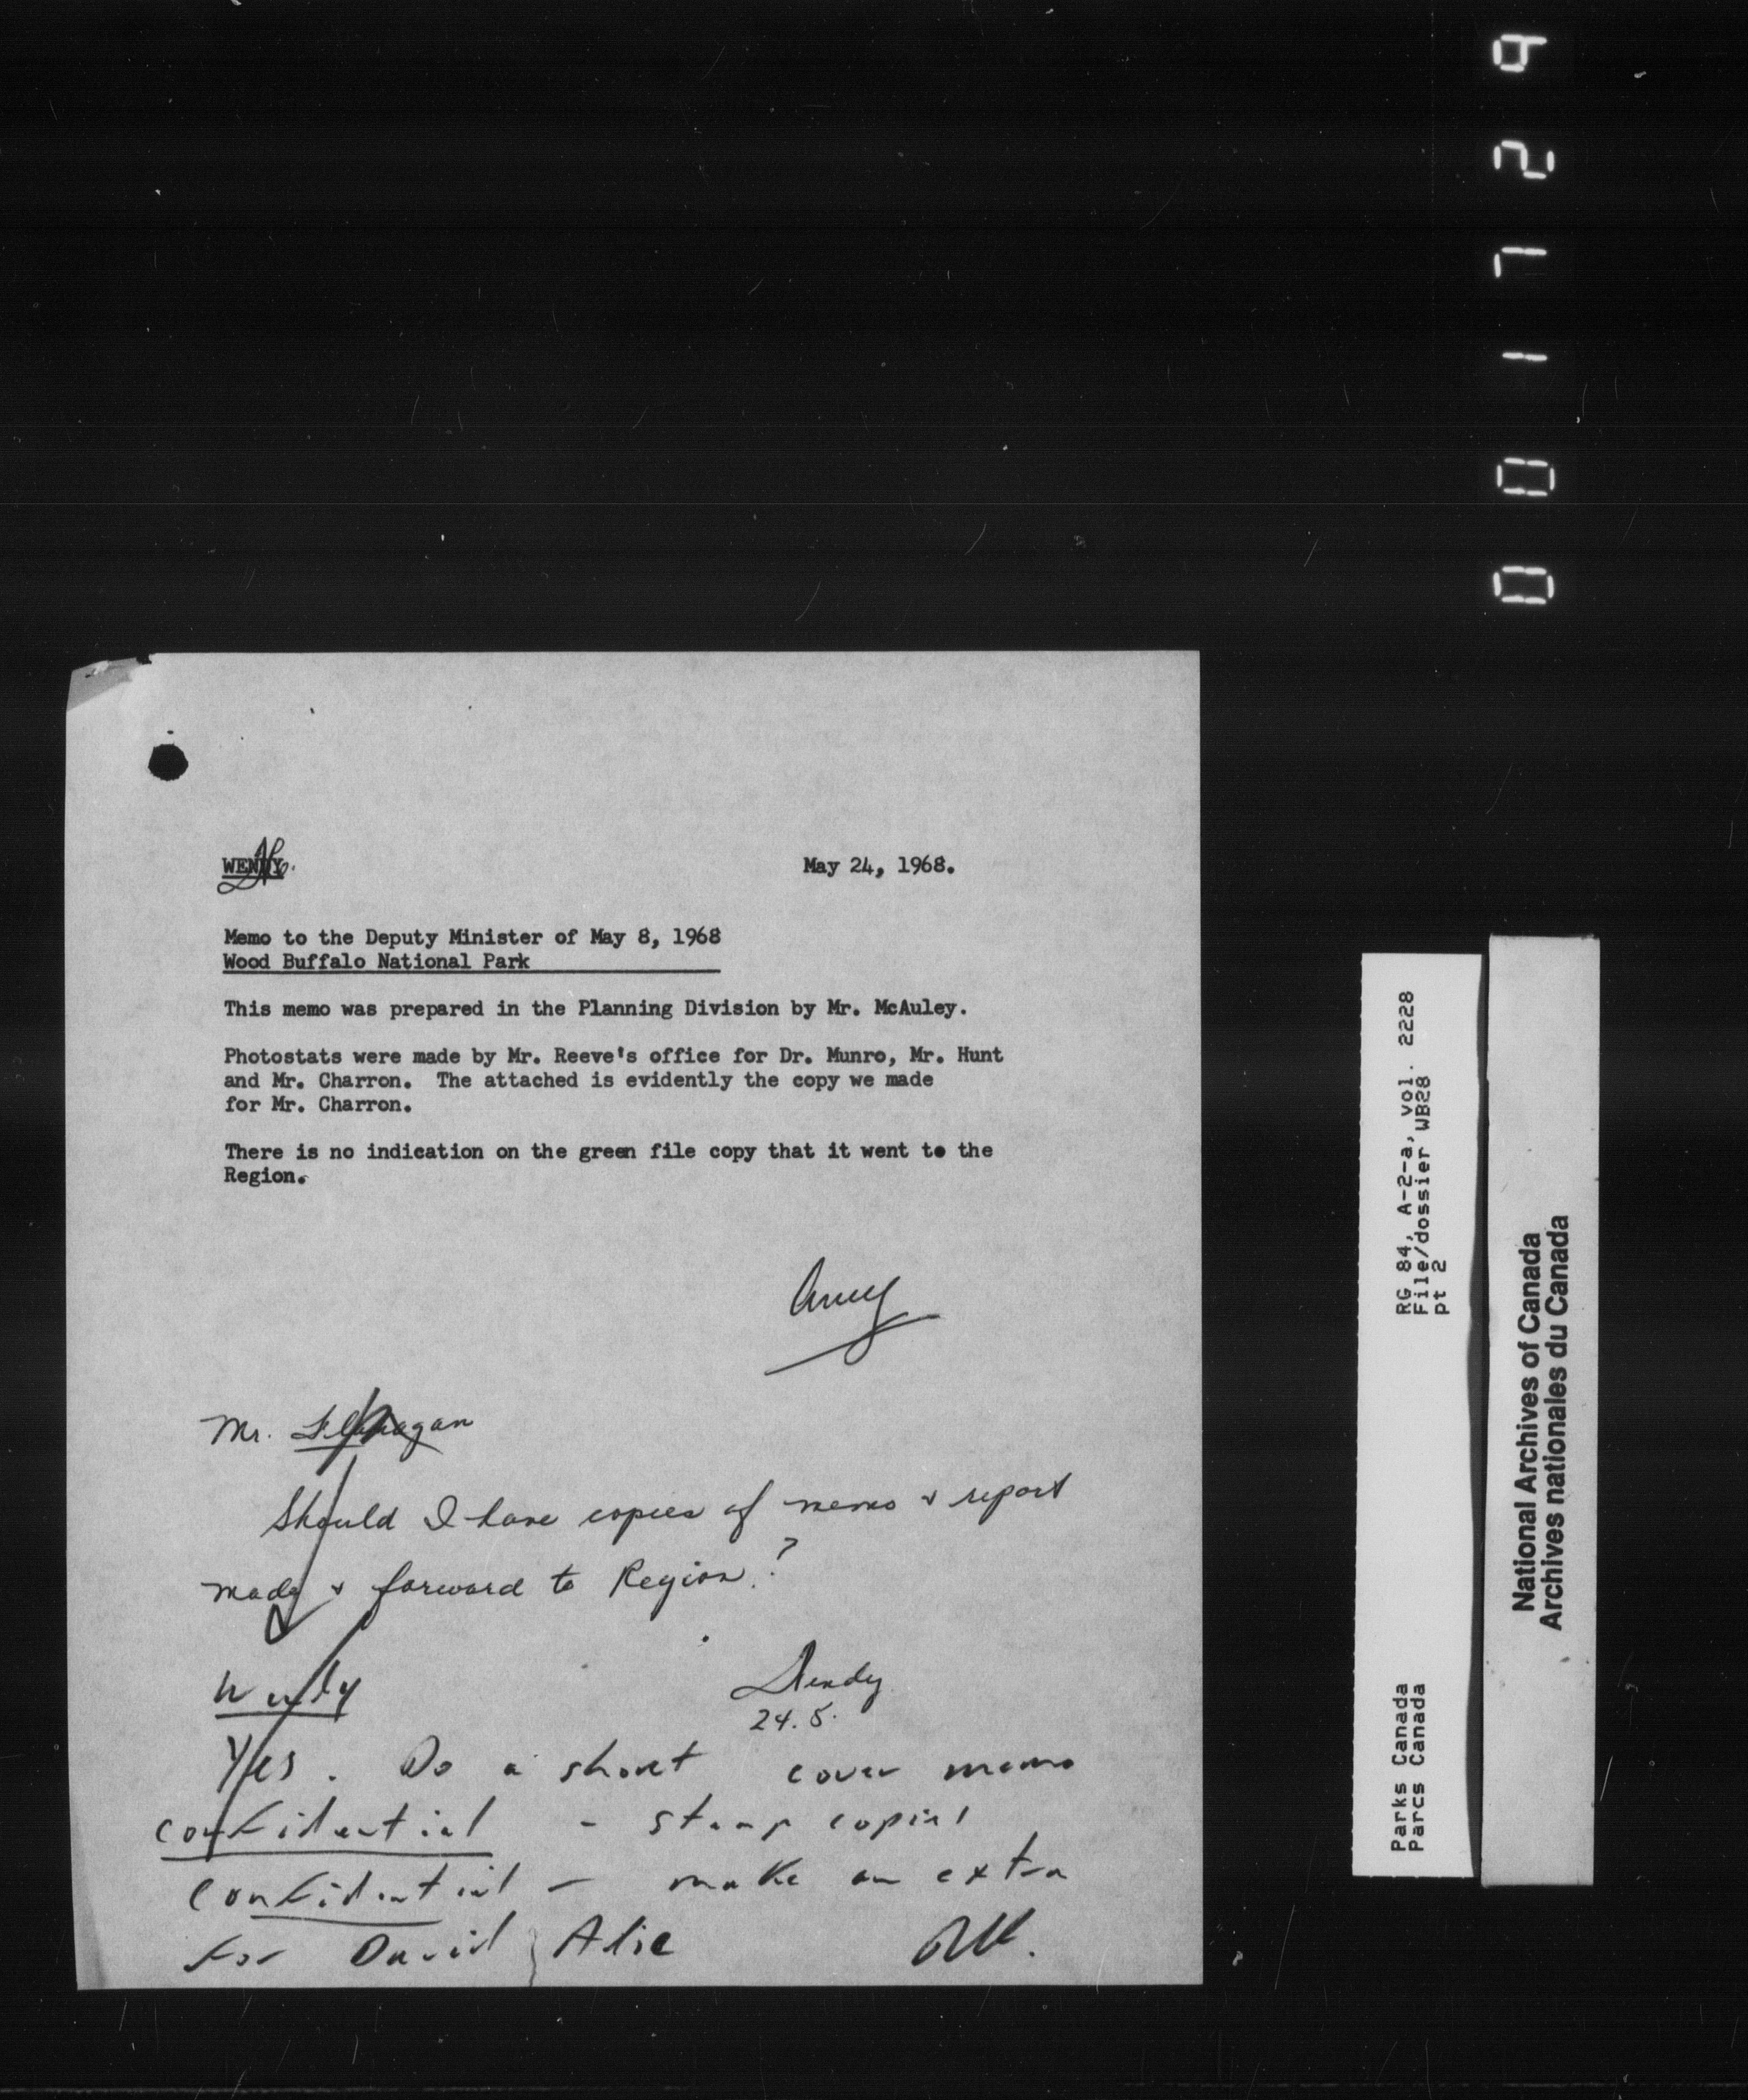 WENDY
May 24, 1968.
Memo to the Deputy Minister of May 8, 1968
Wood Buffalo National Park
This memo was prepared in the Planning Division by Mr. McAuley.
Photostats were made by Mr. Reeve's office for Dr. Munro, Mr. Hunt
and Mr. Charron. The attached is evidently the copy we made
for Mr. Charron.
There is no indication on the green file copy that it went to the
Region.
Mr. Flanagan
Should I have copies of memo & report
made & forward to Region?
Wendy
24.5.
Wendy
Yes. Do a short cover memo
confidential - stamp copies
confidential - make an extra
for David Alie
001729
RG 84, A-2-a, vol. 2228
File/dossier WB28
pt 2
Parks Canada
Parcs Canada
National Archives of Canada
Archives nationales du Canada